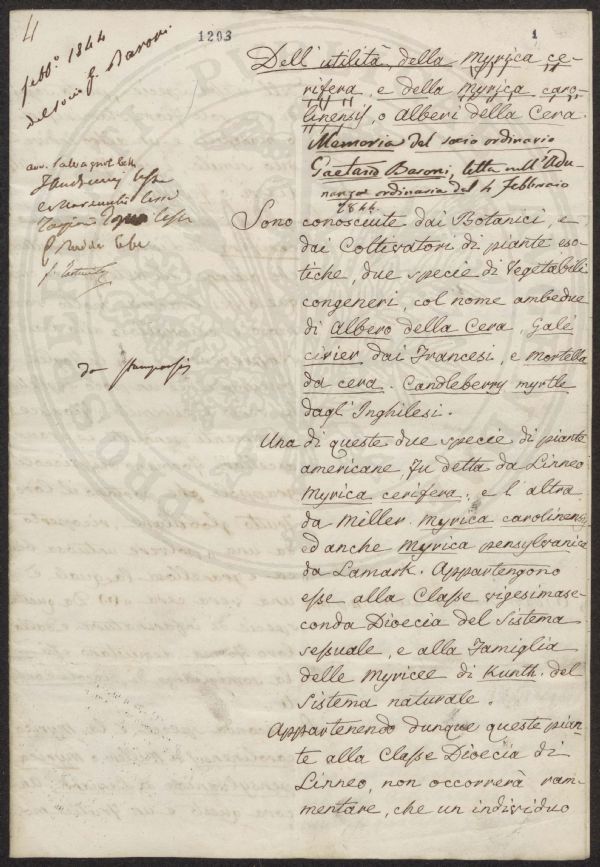 4
febb.º 1844
del socio G. Baroni
1293
1
Dell'utilità della Myrica ce-
rifera, e della Myrica caro-
linensis, o Alberi della Cera.
Memoria del socio ordinario
Gaetano Baroni, letta nell'Adu-
nanza ordinaria del 4 febbraio
1844
da stamparsi
Sono conosciute dai Botanici, e
dai Coltivatori di piante eso-
tiche, due specie di Vegetabili
congeneri, col nome ambedue
di Albero della Cera, Galé
cirier dai Francesi, e mortella
da cera. Candleberry myrtle
dagl'Inghilesi.
Una di queste due specie di piante
americane, fu detta da Linneo
Myrica cerifera, e l'altra
da Miller. Myrica carolinensis,
ed anche Myrica pensylvanica
da Lamark. Appartengono
esse alla Classe vigesimase-
conda Dioecia del Sistema
sessuale, e alla Famiglia
delle Myricee di Kunth. del
Sistema naturale.
Appartenendo dunque queste pian-
te alla Classe Dioecia di
Linneo, non occorrerà ram-
mentare, che un individuo